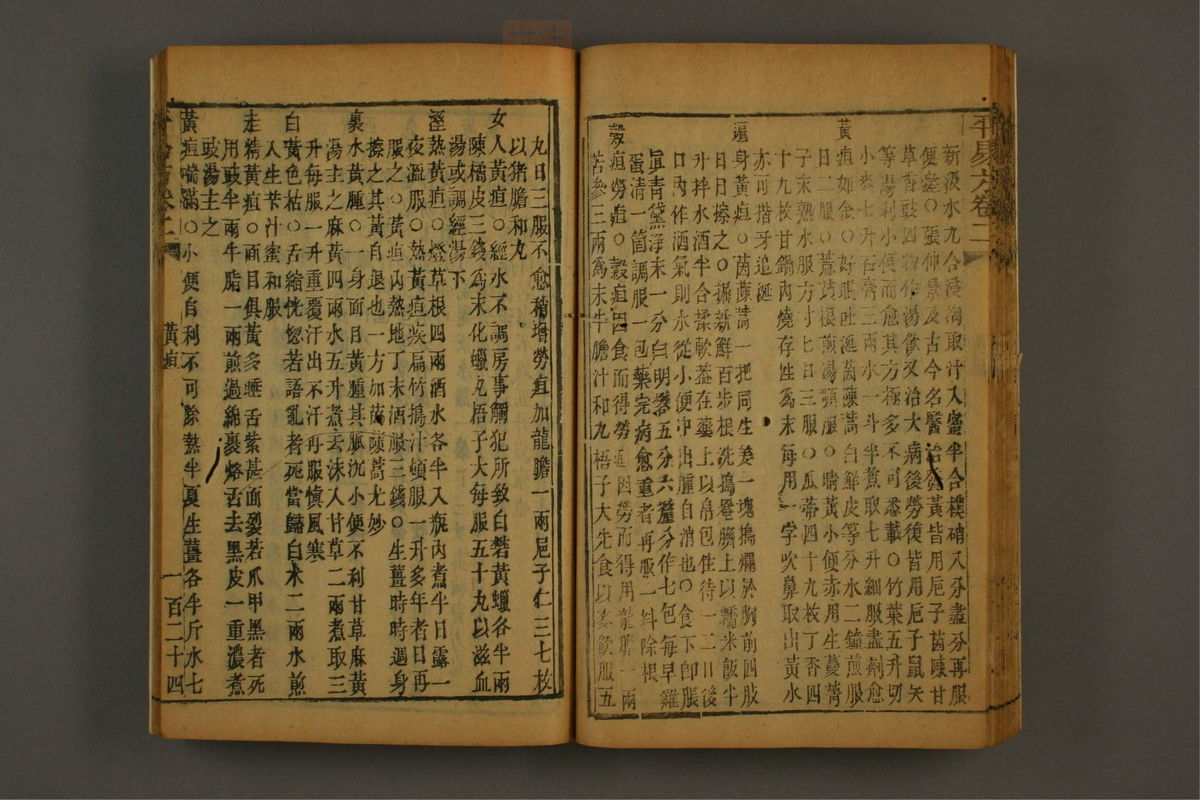 平易方卷二
新汲水九合浸淘取汁人蜜半合樸硝八分盡分再服
便瘥○張仲景及古今名醫治發黃皆用巵子茵陳甘
草香豉四物作湯飲又治大病後勞復皆用巵子鼠矢
等湯利小便而愈其方極多不可悉載○竹葉五升切
小麥七升石膏三兩水一斗半煮取七升細服盡劑愈
黃疸如金○好眠吐涎茵蔯蒿白鮮皮等分水二鍾煎服
日二服○蔓菁根煎湯頓服○睛黃小便赤用生蔓菁
子末熟水服方寸七日三服○瓜蒂四十九枚丁香四
十九枚甘鍋內燒存性為末每用一字吹鼻取出黃水
亦可揩牙追涎
遍身黃疸○茵蔯蒿一把同生姜一塊搗爛於胸前四肢
日日擦之○搗新鮮百步根洗搗罨臍上以糯米飯半
升拌水酒半合揉軟葢在藥上以帛包住待一二日後
口內作酒氣則水從小便中出腫自消也○食下卽脹
眞青黛淨末一分白明礬五分六釐分作七包每早雞
蛋清一箇調服一包藥完病愈重者再服一料除根
穀疸勞疸○穀疸因食而得勞疸因勞而得用龍膽一兩
苦參三兩為末牛膽汁和丸梧子大先食以麥飲服五
丸日三服不愈稍增勞疸加龍膽一兩巵子仁三七枚
以猪膽和丸
女人黃疸○經水不調房事觸犯所致白礬黃蠟各半兩
陳橘皮三錢爲末化蠟丸梧子大每服五十丸以滋血
湯或調經湯下
溼熱黃疸○燈草根四兩酒水各半入瓶內煮半日露一
夜溫服○熱黃疸疾扁竹搗汁頓服一升多年者日再
服之○黃疸內熱地丁末酒服三錢○生薑時時週身
擦之其黃自退也一方加茵蔯蒿尤妙
裏水黃腫○一身面目黃腫其脈沉小便不利甘草麻黃
湯主之麻黃四兩水五升煮去沫入甘草二兩煮取三
升每服一升重覆汗出不汗再服愼風寒
白黃色枯○舌縮恍惚若語亂者死當歸白朮二兩水煎
入生苄汁蜜和服
走精黃疸○面目俱黃多睡舌紫甚面裂若爪甲黑者死
用豉半兩牛脂一兩煎過綿裹烙舌去黑皮一重濃煮
豉湯主之
黃疸喘滿○小便自利不可除熱半夏生薑各半斤水七
黃疸
一百二十四